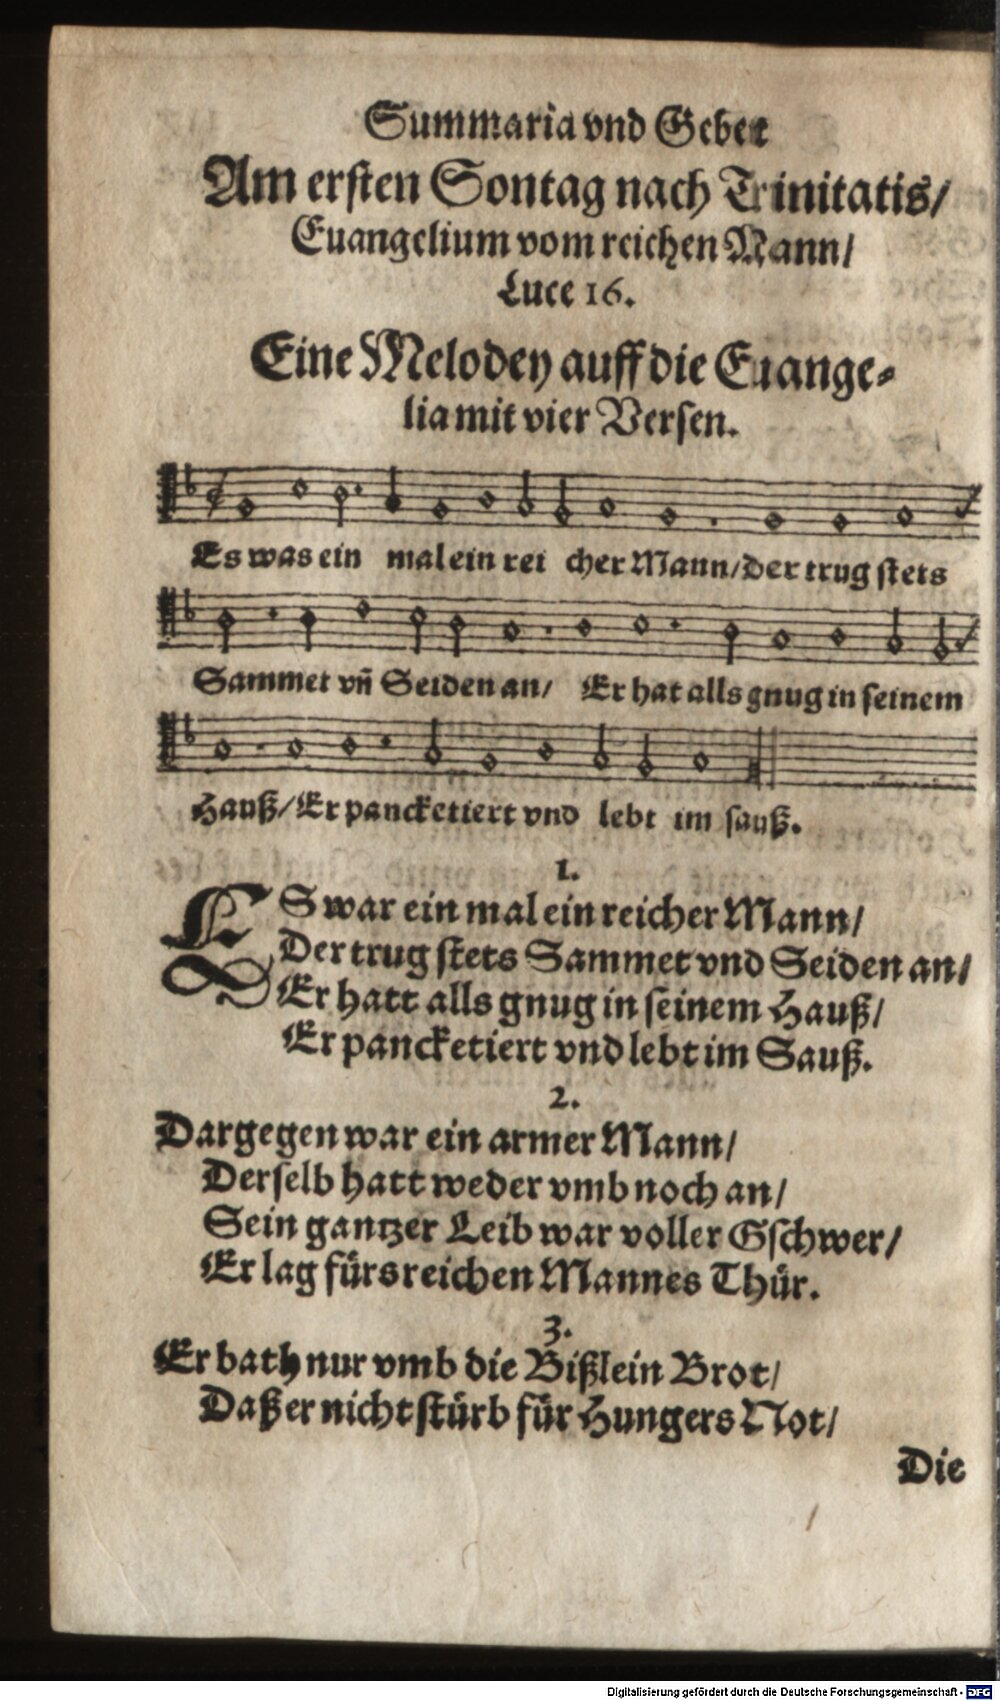 Summaria vnd Gebet
Am ersten Sontag nach Trinitatis/
Euangelium vom reichen Mann/
Luce 16.
Eine Melodey auff die Euange-
lia mit vier Versen.
Es was ein mal ein rei cher Mann/der trug stets
Sammet vn̄ Seiden an/ Er hat alls gnug in seinem
Hauß/Er pancketiert vnd lebt im sauß.
1.
ES war ein mal ein reicher Mann/
Der trug stets Sammet vnd Seiden an/
Er hatt alls gnug in seinem Hauß/
Er pancketiert vnd lebt im Sauß.
2.
Dargegen war ein armer Mann/
Derselb hatt weder vmb noch an/
Sein gantzer Leib war voller Gschwer/
Er lag fürs reichen Mannes Thür.
3.
Er bath nur vmb die Bißlein Brot/
Daß er nicht stürb für Hungers Not/
Die
Digitalisierung gefördert durch die Deutsche Forschungsgemeinschaft - DFG